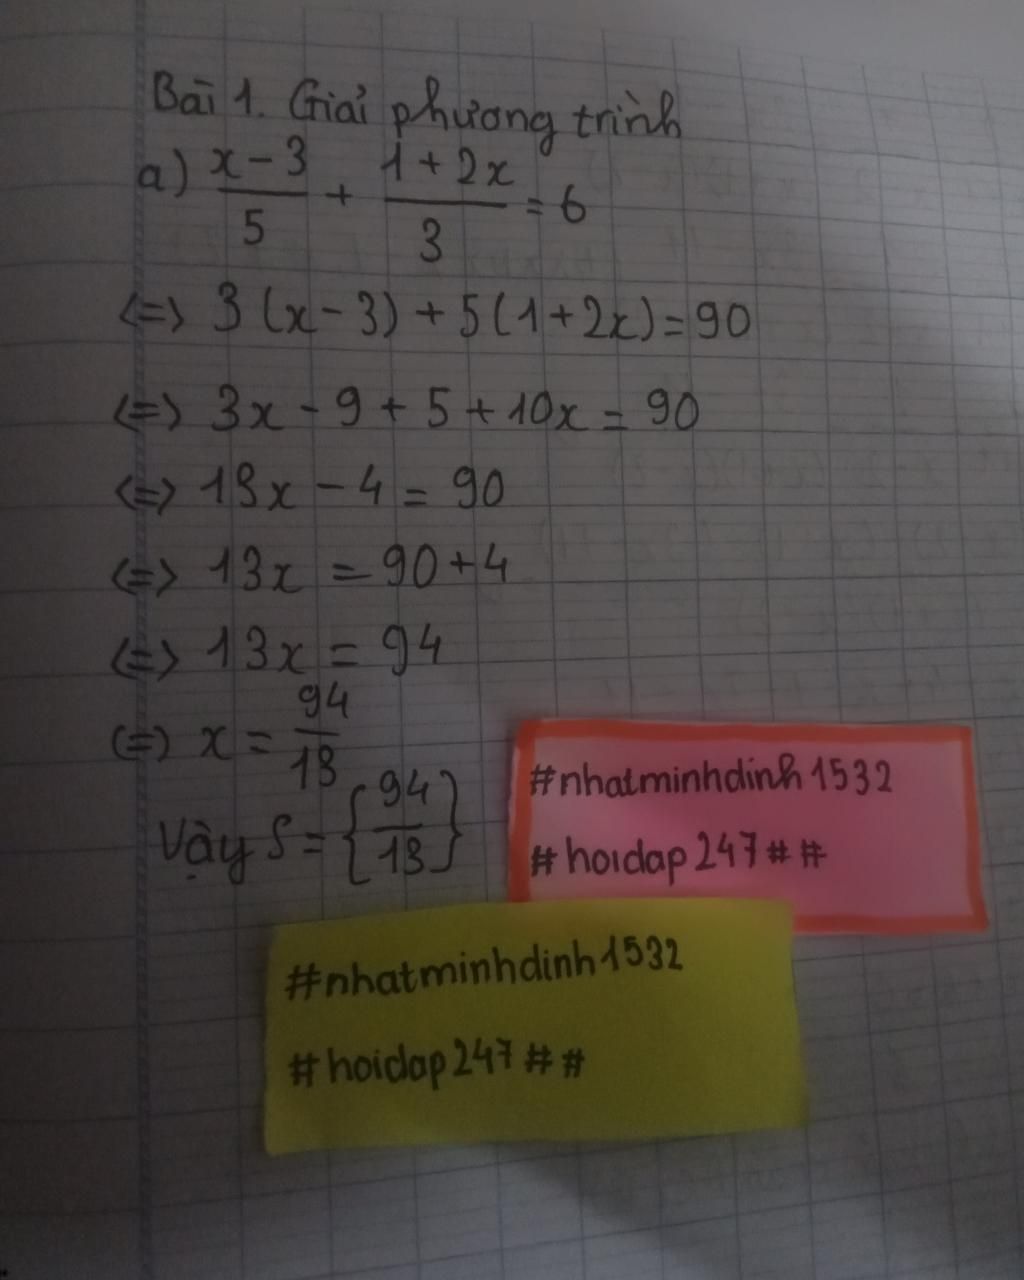 Bài 1. Giải phương trình
a) x-3/5 + 1+2x/3 = 6
<=> 3(x-3)+5(1+2x)=90
<=> 3x-9+5+10x=90
<=> 13x-4=90
<=> 13x=90+4
<=> 13x=94
<=> x=94/13
Vậy S={94/13}
#nhatminhdinh1532
#hoidap247##
#nhatminhdinh1532
#hoidap247##